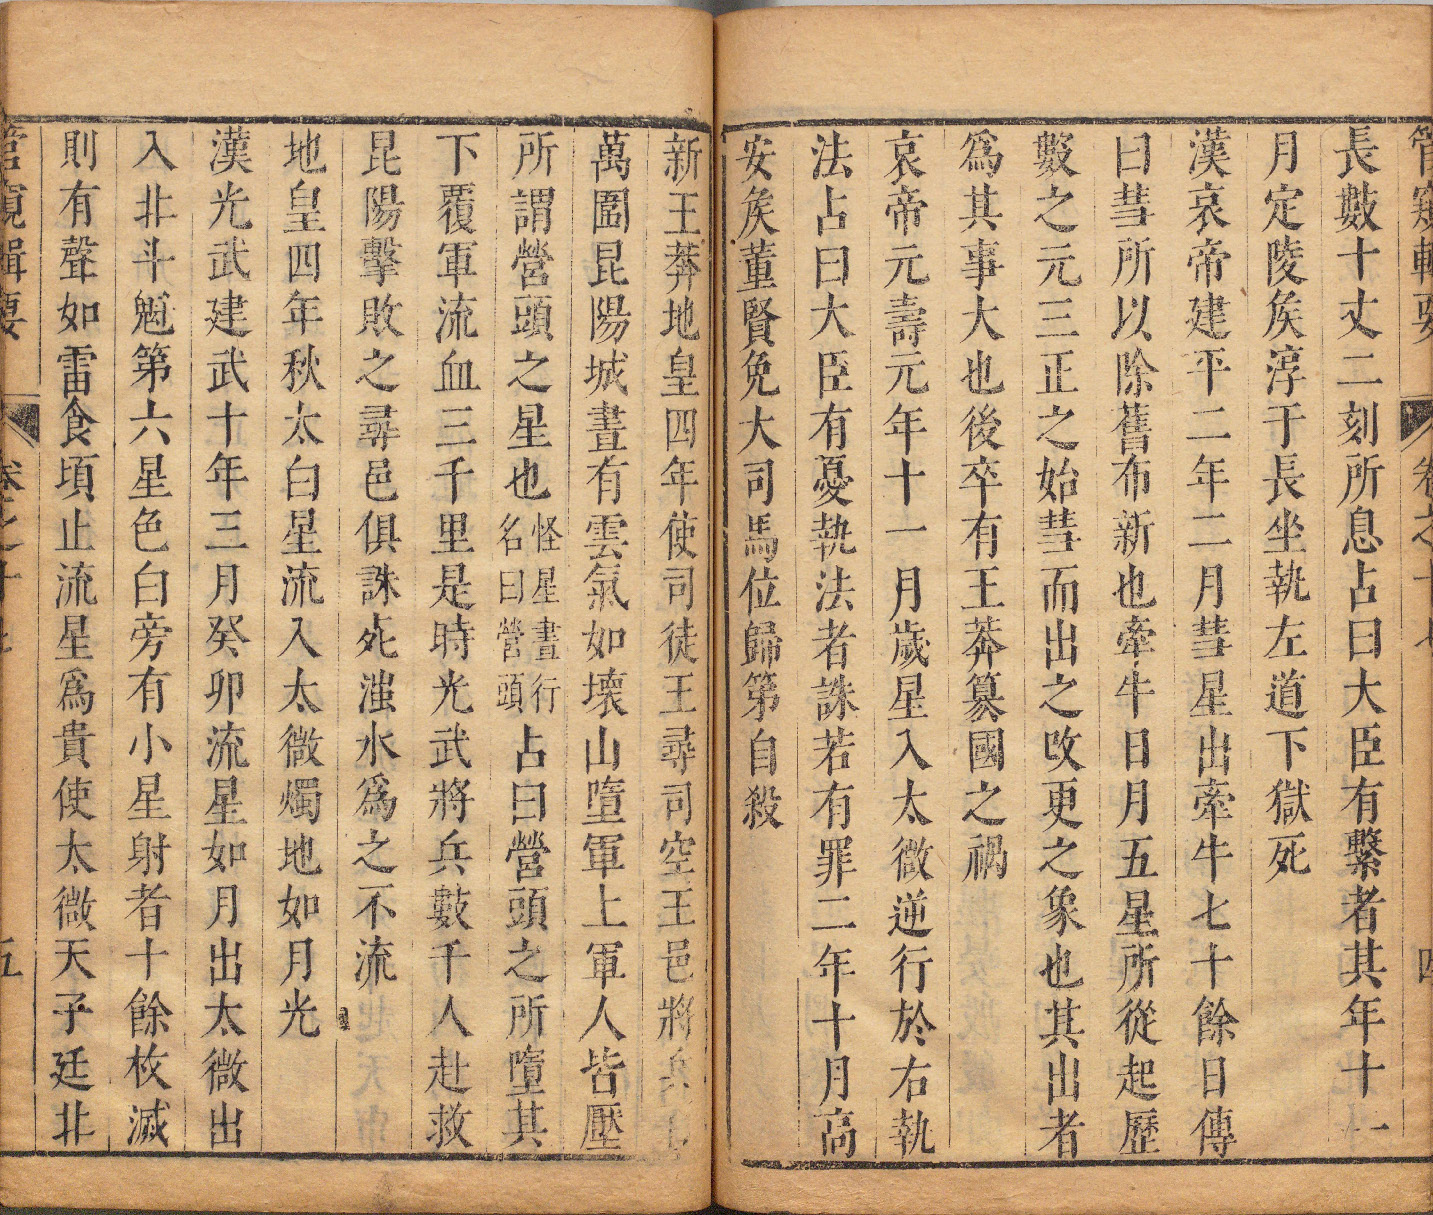 管窺輯要 卷之十七 四
長數十丈二刻所息占曰大臣有繫者其年十一
月定陵矦淳于長坐執左道下獄死
漢哀帝建平二年二月彗星出牽牛七十餘日傳
曰彗所以除舊布新也牽牛日月五星所從起歷
數之元三正之始彗而出之改更之象也其出者
爲其事大也後卒有王莽篡國之禍
哀帝元壽元年十一月歲星入太微逆行於右執
法占曰大臣有憂執法者誅若有罪二年十月高
安矦董賢免大司馬位歸第自殺
新王莽地皇四年使司徒王尋司空王邑將兵
萬圍昆陽城晝有雲氣如壞山墮軍上軍人皆壓
所謂營頭之星也怪星晝行名曰營頭占曰營頭之所墮其
下覆軍流血三千里是時光武將兵數千人赴救
昆陽擊敗之尋邑俱誅死滍水爲之不流
地皇四年秋太白星流入太微燭地如月光
漢光武建武十年三月癸卯流星如月出太微出
入北斗魁第六星色白旁有小星射者十餘枚滅
則有聲如雷食頃止流星爲貴使太微天子廷北
管窺輯要 卷之十七 五